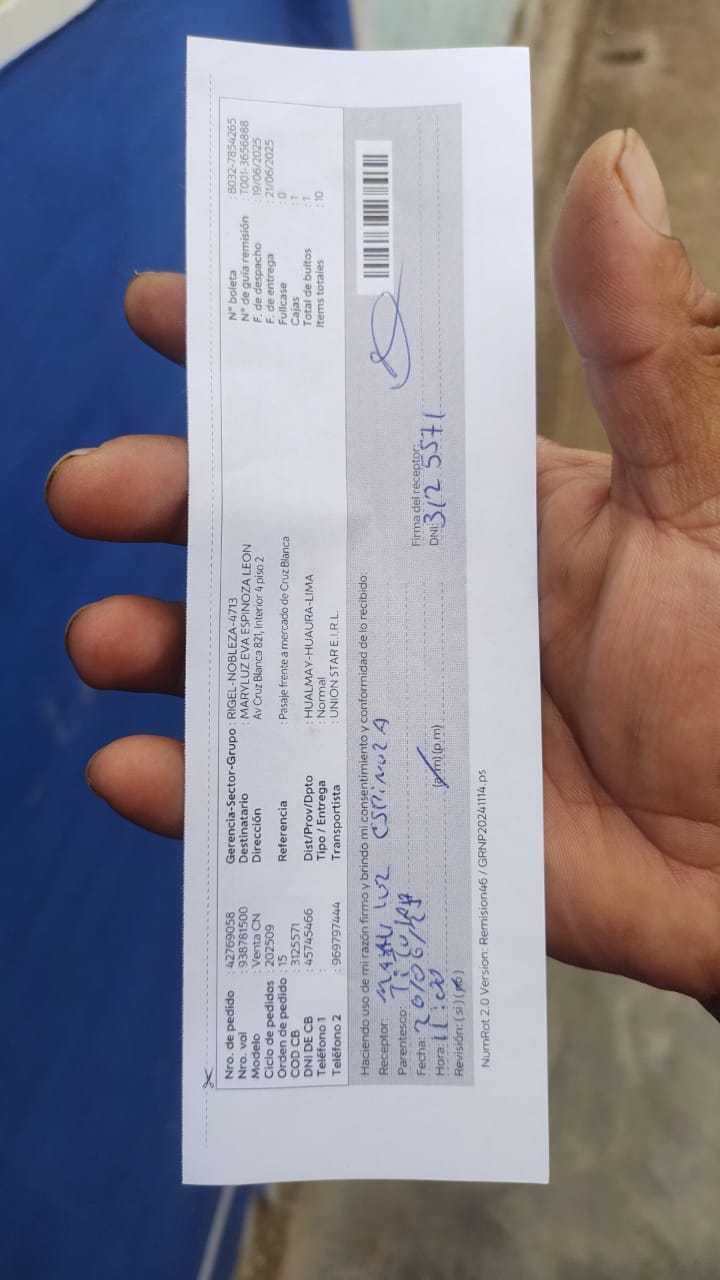 Nro. de pedido : 42769058
Nro. val : 938781500
Modelo : Venta CN
Ciclo de pedidos : 202509
Orden de pedido : 15
COD CB : 3125571
DNI DE CB : 45745466
Teléfono 1 :
Teléfono 2 : 969797444
Gerencia-Sector-Grupo : RIGEL-NOBLEZA-4713
Destinatario : MARYLUZ EVA ESPINOZA LEON
Dirección Av Cruz Blanca 821, Interior 4 piso 2
Referencia : Pasaje frente a mercado de Cruz Blanca
Dist/Prov/Dpto : HUALMAY-HUAURA-LIMA
Tipo / Entrega : Normal
Transportista : UNION STAR E.I.R.L.
N° boleta : B032-7854265
N° de guía remisión : T001-3656888
F. de despacho : 19/06/2025
F. de entrega : 21/06/2025
Fullcase : 0
Cajas : 1
Total de bultos : 1
Items totales : 10
Haciendo uso de mi razón firmo y brindo mi consentimiento y conformidad de lo recibido:
Receptor: Mary luz ESPINOZA
Parentesco: Titular
Fecha: 20/06/25
Hora: 11:00 (a.m) (p.m)
Revisión: (si) (no)
Firma del receptor:
DNI: 3125571
NumRot 2.0 Version: Remision46 / GRNP20241114.ps